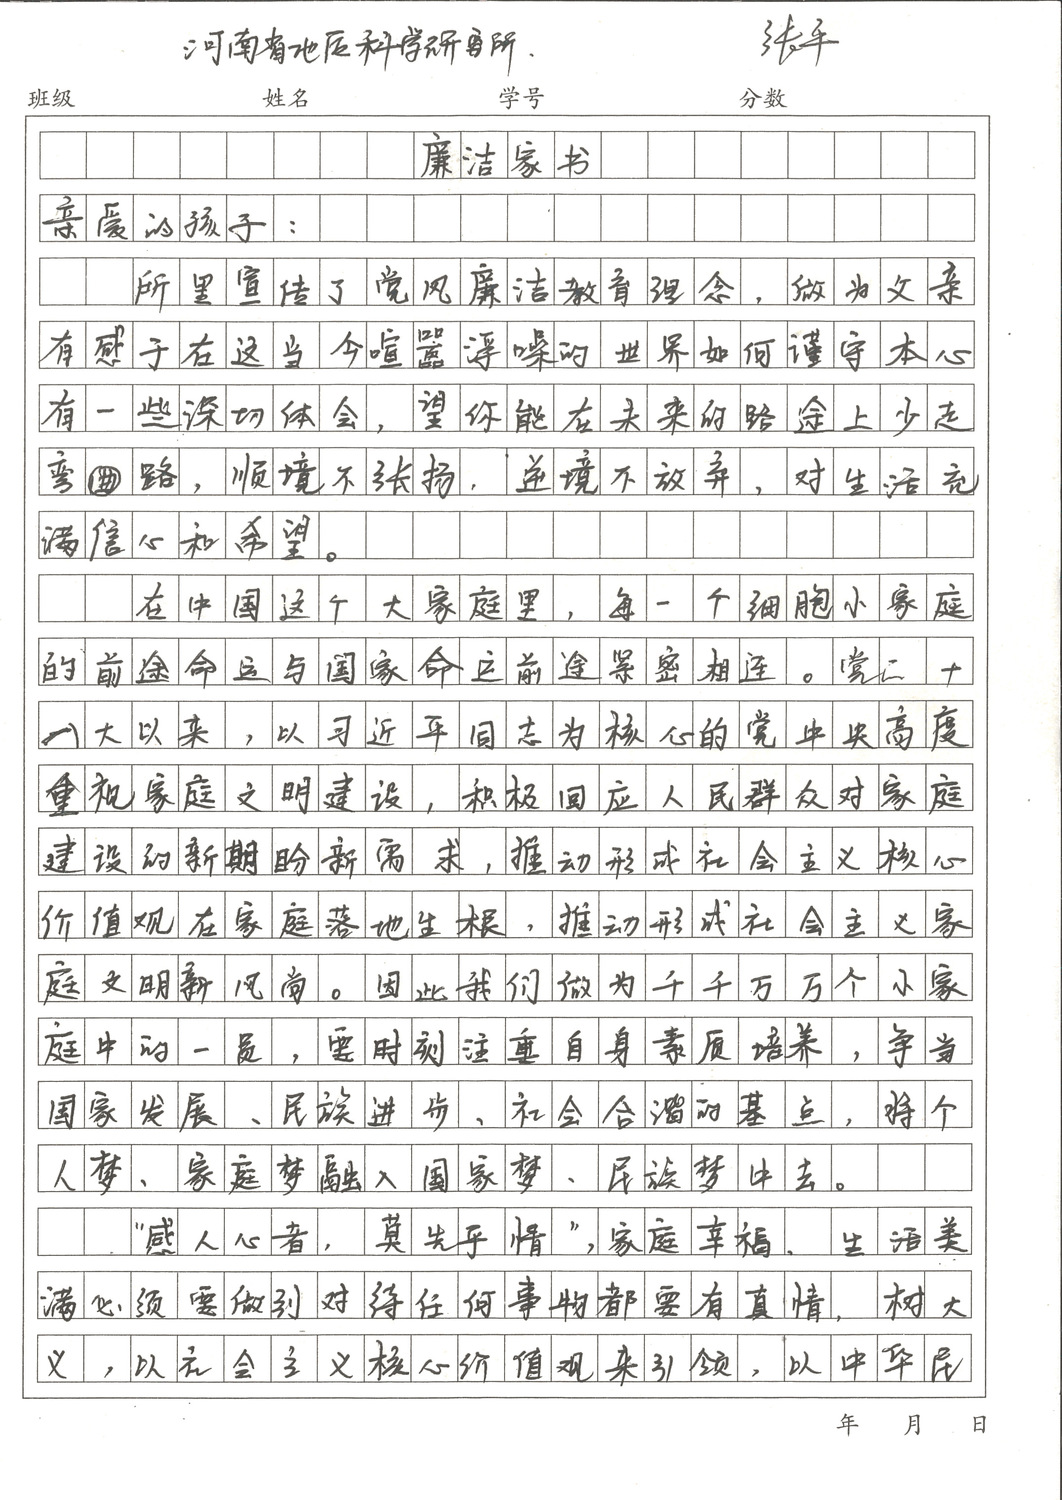 河南省地区科学研究所. 张平
班级 姓名 学号 分数
廉洁家书
亲爱的孩子：
所里宣传了党风廉洁教育理念，做为父亲
有感于在这当今喧嚣浮噪的世界如何谨守本心
有一些深切体会，望你能在未来的路途上少走
弯路，顺境不张扬，逆境不放弃，对生活充
满信心和希望。
在中国这个大家庭里，每一个细胞小家庭
的前途命运与国家命运前途紧密相连。党二十
八大以来，以习近平同志为核心的党中央高度
重视家庭文明建设，积极回应人民群众对家庭
建设的新期盼新需求，推动形成社会主义核心
价值观在家庭落地生根，推动形成社会主义家
庭文明新风尚。因此我们做为千千万万个小家
庭中的一员，要时刻注重自身素质培养，争当
国家发展、民族进步、社会合谐的基点，将个
人梦、家庭梦融入国家梦、民族梦中去。
“感人心者，莫先乎情”，家庭幸福、生活美
满必须要做到对待任何事物都要有真情，树大
义，以社会主义核心价值观来引领，以中华民
年 月 日